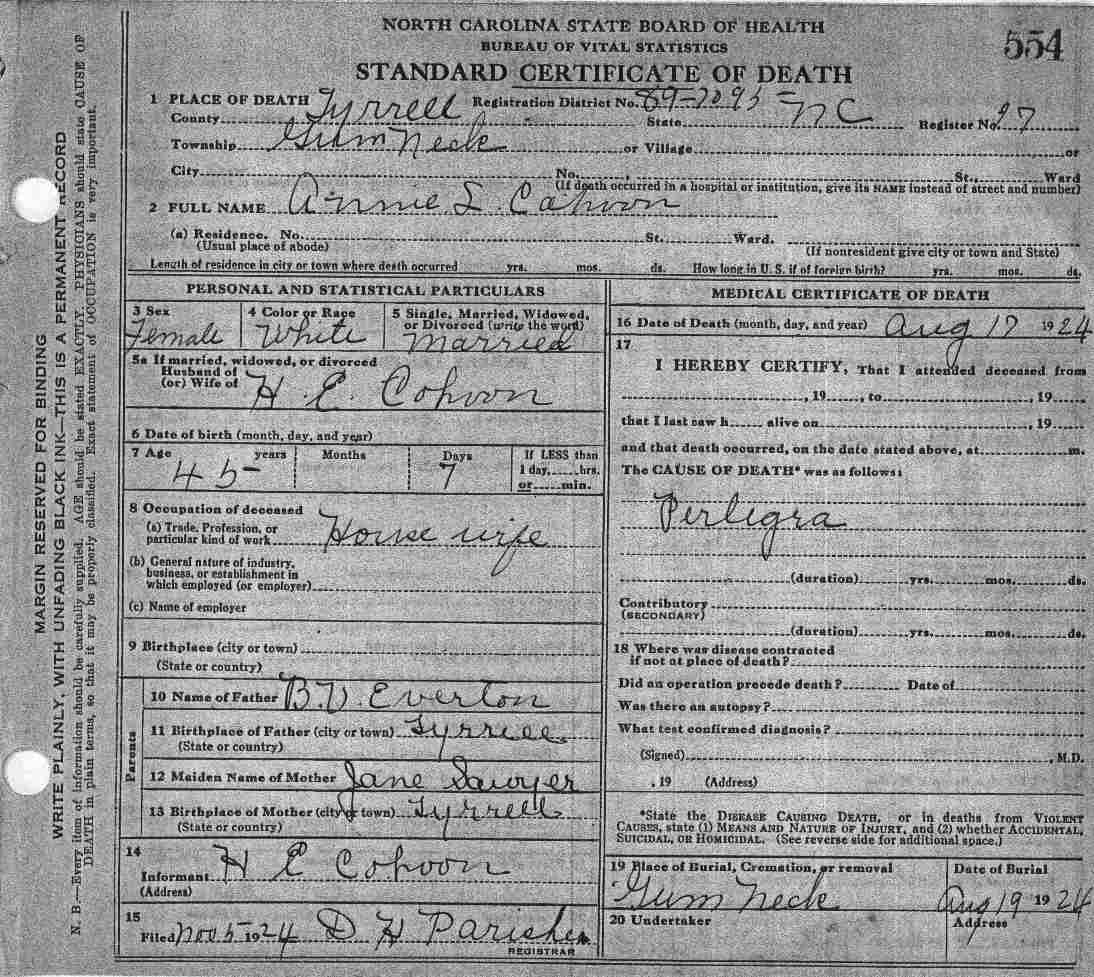 NORTH CAROLINA STATE BOARD OF HEALTH
BUREAU OF VITAL STATISTICS
554
STANDARD CERTIFICATE OF DEATH
1 PLACE OF DEATH Registration District No. 89-7095- 
County Tyrrell State NC Register No. 27
Township Gum Neck or Village or
City No. St., Ward
(If death occurred in a hospital or institution, give its NAME instead of street and number)
2 FULL NAME Annie L Cahoon
(a) Residence. No. St. Ward.
(Usual place of abode) (If nonresident give city or town and State)
Length of residence in city or town where death occurred yrs. mos. ds. How long in U. S. if of foreign birth? yrs. mos. ds.
PERSONAL AND STATISTICAL PARTICULARS
3 Sex 4 Color or Race 5 Single, Married, Widowed,
or Divorced (write the word)
Female White Married
5a If married, widowed, or divorced
Husband of
(or) Wife of H. E. Cohoon
6 Date of birth (month, day, and year)
7 Age years Months Days If LESS than
1 day, hrs.
or min.
45- 7
8 Occupation of deceased
(a) Trade, Profession, or
particular kind of work House wife
(b) General nature of industry,
business, or establishment in
which employed (or employer)
(c) Name of employer
9 Birthplace (city or town)
(State or country)
Parents
10 Name of Father B. V. Everton
11 Birthplace of Father (city or town) Tyrrell
(State or country)
12 Maiden Name of Mother Jane Sawyer
13 Birthplace of Mother (city or town) Tyrrell
(State or country)
14
Informant H E Cohoon
(Address)
15
Filed Nov 5 1924 D H
REGISTRAR
MEDICAL CERTIFICATE OF DEATH
16 Date of Death (month, day, and year) Aug 17 1924
17
I HEREBY CERTIFY, That I attended deceased from
, 19 , to , 19
that I last saw h alive on , 19
and that death occurred, on the date stated above, at m.
The CAUSE OF DEATH* was as follows:
Perlegra
(duration) yrs. mos. ds.
Contributory
(SECONDARY)
(duration) yrs. mos. ds.
18 Where was disease contracted
if not at place of death?
Did an operation precede death? Date of
Was there an autopsy?
What test confirmed diagnosis?
(Signed) , M.D.
, 19 (Address)
*State the DISEASE CAUSING DEATH, or in deaths from VIOLENT
CAUSES, state (1) MEANS AND NATURE OF INJURY, and (2) whether ACCIDENTAL,
SUICIDAL, OR HOMICIDAL. (See reverse side for additional space.)
19 Place of Burial, Cremation, or removal Date of Burial
Gum Neck Aug 19 1924
20 Undertaker Address
MARGIN RESERVED FOR BINDING
WRITE PLAINLY, WITH UNFADING BLACK INK—THIS IS A PERMANENT RECORD
N. B.—Every item of information should be carefully supplied. AGE should be stated EXACTLY. PHYSICIANS should state CAUSE OF
DEATH in plain terms, so that it may be properly classified. Exact statement of OCCUPATION is very important.